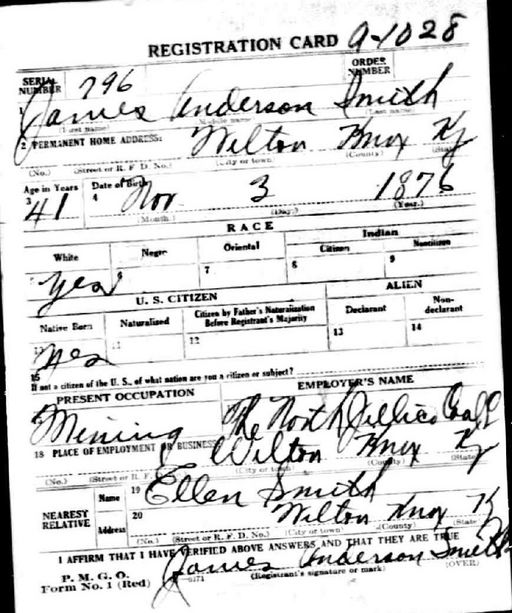 REGISTRATION CARD A-1028
SERIAL NUMBER 796 ORDER NUMBER
1 James Anderson Smith
(First name) (Middle name) (Last name)
2 PERMANENT HOME ADDRESS: Wilton Knox Ky
(No.) (Street or R. F. D. No.) (City or town) (County) (State)
Age in Years Date of Birth
3 41 4 Nov 3 1876
(Month.) (Day.) (Year.)
RACE
White Negro Oriental Indian
Citizen Noncitizen
yes 7 8 9
U. S. CITIZEN ALIEN
Native Born Naturalized Citizen by Father's Naturalization Before Registrant's Majority Declarant Non-declarant
yes 11 12 13 14
15
If not a citizen of the U. S., of what nation are you a citizen or subject?
PRESENT OCCUPATION EMPLOYER'S NAME
Mining The North Jellico Coal
18 PLACE OF EMPLOYMENT OR BUSINESS: Wilton Knox Ky
(No.) (Street or R. F. (City or town) (County) (State)
NEAREST RELATIVE Name 19 Ellen Smith
Address 20 Wilton Knox K
(No.) (Street or R. F. D. No.) (City or town) (County) (State)
I AFFIRM THAT I HAVE VERIFIED ABOVE ANSWERS AND THAT THEY ARE TRUE
P. M. G. O.
Form No. 1 (Red) James Anderson Smith
(Registrant's signature or mark) (OVER)